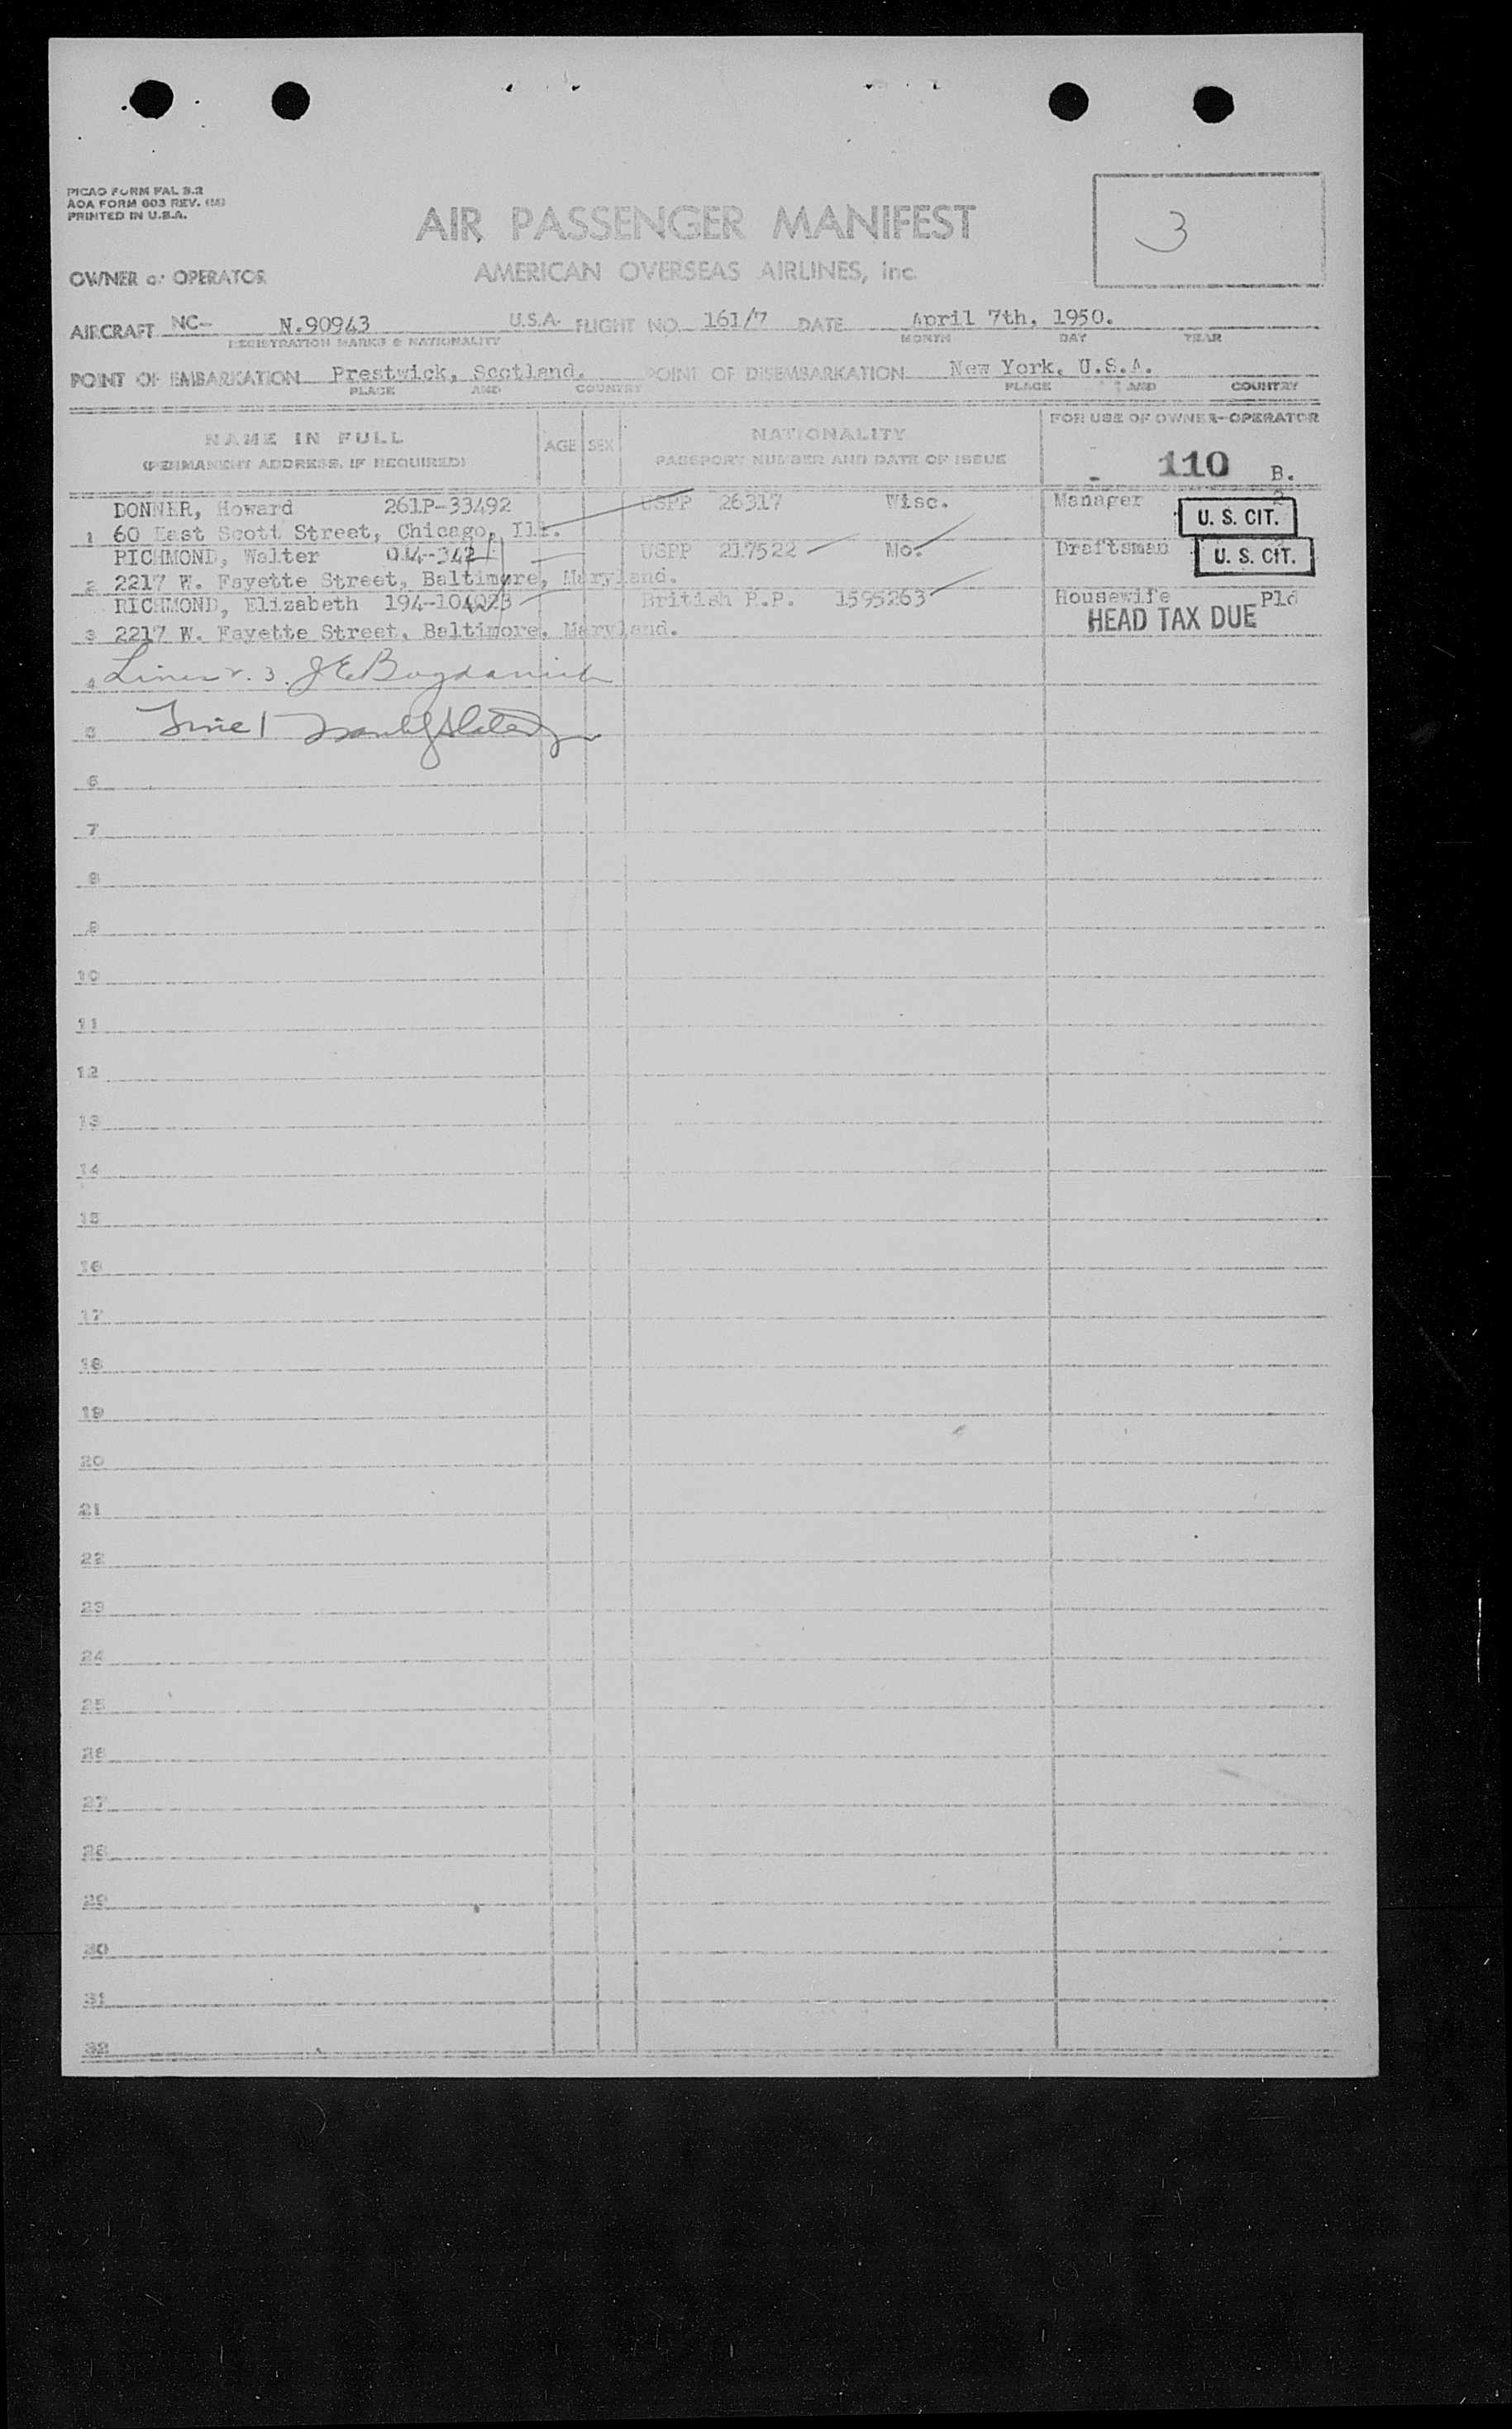 PICAO FORM FAL S.2
AOA FORM 603 REV.
PRINTED IN U.S.A.
3
AIR PASSENGER MANIFEST
OWNER or OPERATOR AMERICAN OVERSEAS AIRLINES, Inc.
AIRCRAFT NC- N.90943 U.S.A. FLIGHT NO. 161/7 DATE April 7th, 1950.
REGISTRATION MARKS & NATIONALITY MONTH DAY YEAR
POINT OF EMBARKATION Prestwick, Scotland. POINT OF DISEMBARKATION New York, U.S.A.
PLACE AND COUNTRY PLACE AND COUNTRY
NAME IN FULL AGE SEX NATIONALITY FOR USE OF OWNER-OPERATOR
(PERMANENT ADDRESS, IF REQUIRED) PASSPORT NUMBER AND DATE OF ISSUE
- 110 B.
DONNER, Howard 261P-33492 USPP 26317 Wisc. Manager 2
1 60 East Scott Street, Chicago, Ill. U. S. CIT.
RICHMOND, Walter 014-342 USPP 217522 No. Draftsman U. S. CIT.
2 2217 W. Fayette Street, Baltimore, Maryland.
RICHMOND, Elizabeth 194-104023 British P.P. 1595263 Housewife Pld
3 2217 W. Fayette Street, Baltimore, Maryland. HEAD TAX DUE
4 Lines 2. 3. J E Bogdanich
5 Line 1
6
7
8
9
10
11
12
13
14
15
16
17
18
19
20
21
22
23
24
25
26
27
28
29
30
31
32